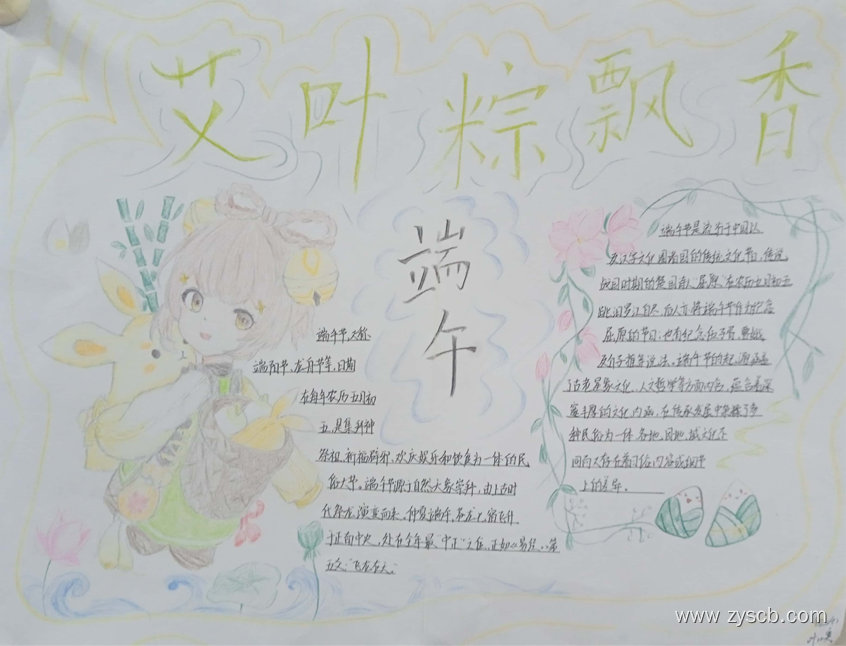 艾叶粽飘香
端午
端午节,又称
端阳节、龙舟节等,日期
在每年农历五月初
五,是集拜神
祭祖、祈福辟邪、欢庆娱乐和饮食为一体的民
俗大节。端午节源于自然天象崇拜,由上古时
代祭龙演变而来。仲夏端午,苍龙七宿飞升
于正南中央,处在全年最“中正”之位,正如《易经》第
五爻:“飞龙在天”
端午节是流行于中国以
及汉字文化圈诸国的传统文化节日,传说
战国时期的楚国诗人屈原在农历五月初五
跳汨罗江自尽,后人亦将端午节作为纪念
屈原的节日;也有纪念伍子胥、曹娥
及介子推等说法。端午节的起源涵盖
了古老星象文化、人文哲学等方面内容,蕴含着深
邃丰厚的文化内涵,在传承发展中杂糅了多
种民俗为一体,各地因地域文化不
同而又存在着习俗内容或细节
上的差异。
www.zyscb.com